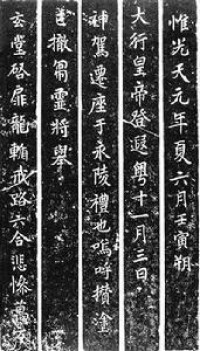 惟光天元年夏六月壬寅朔
大行皇帝登遐粤十一月三日
神駕遷座于永陵禮也嗚呼攢塗
已撤帟靈將舉
玄堂啓扉龍輴戒路六合悲慘萬方